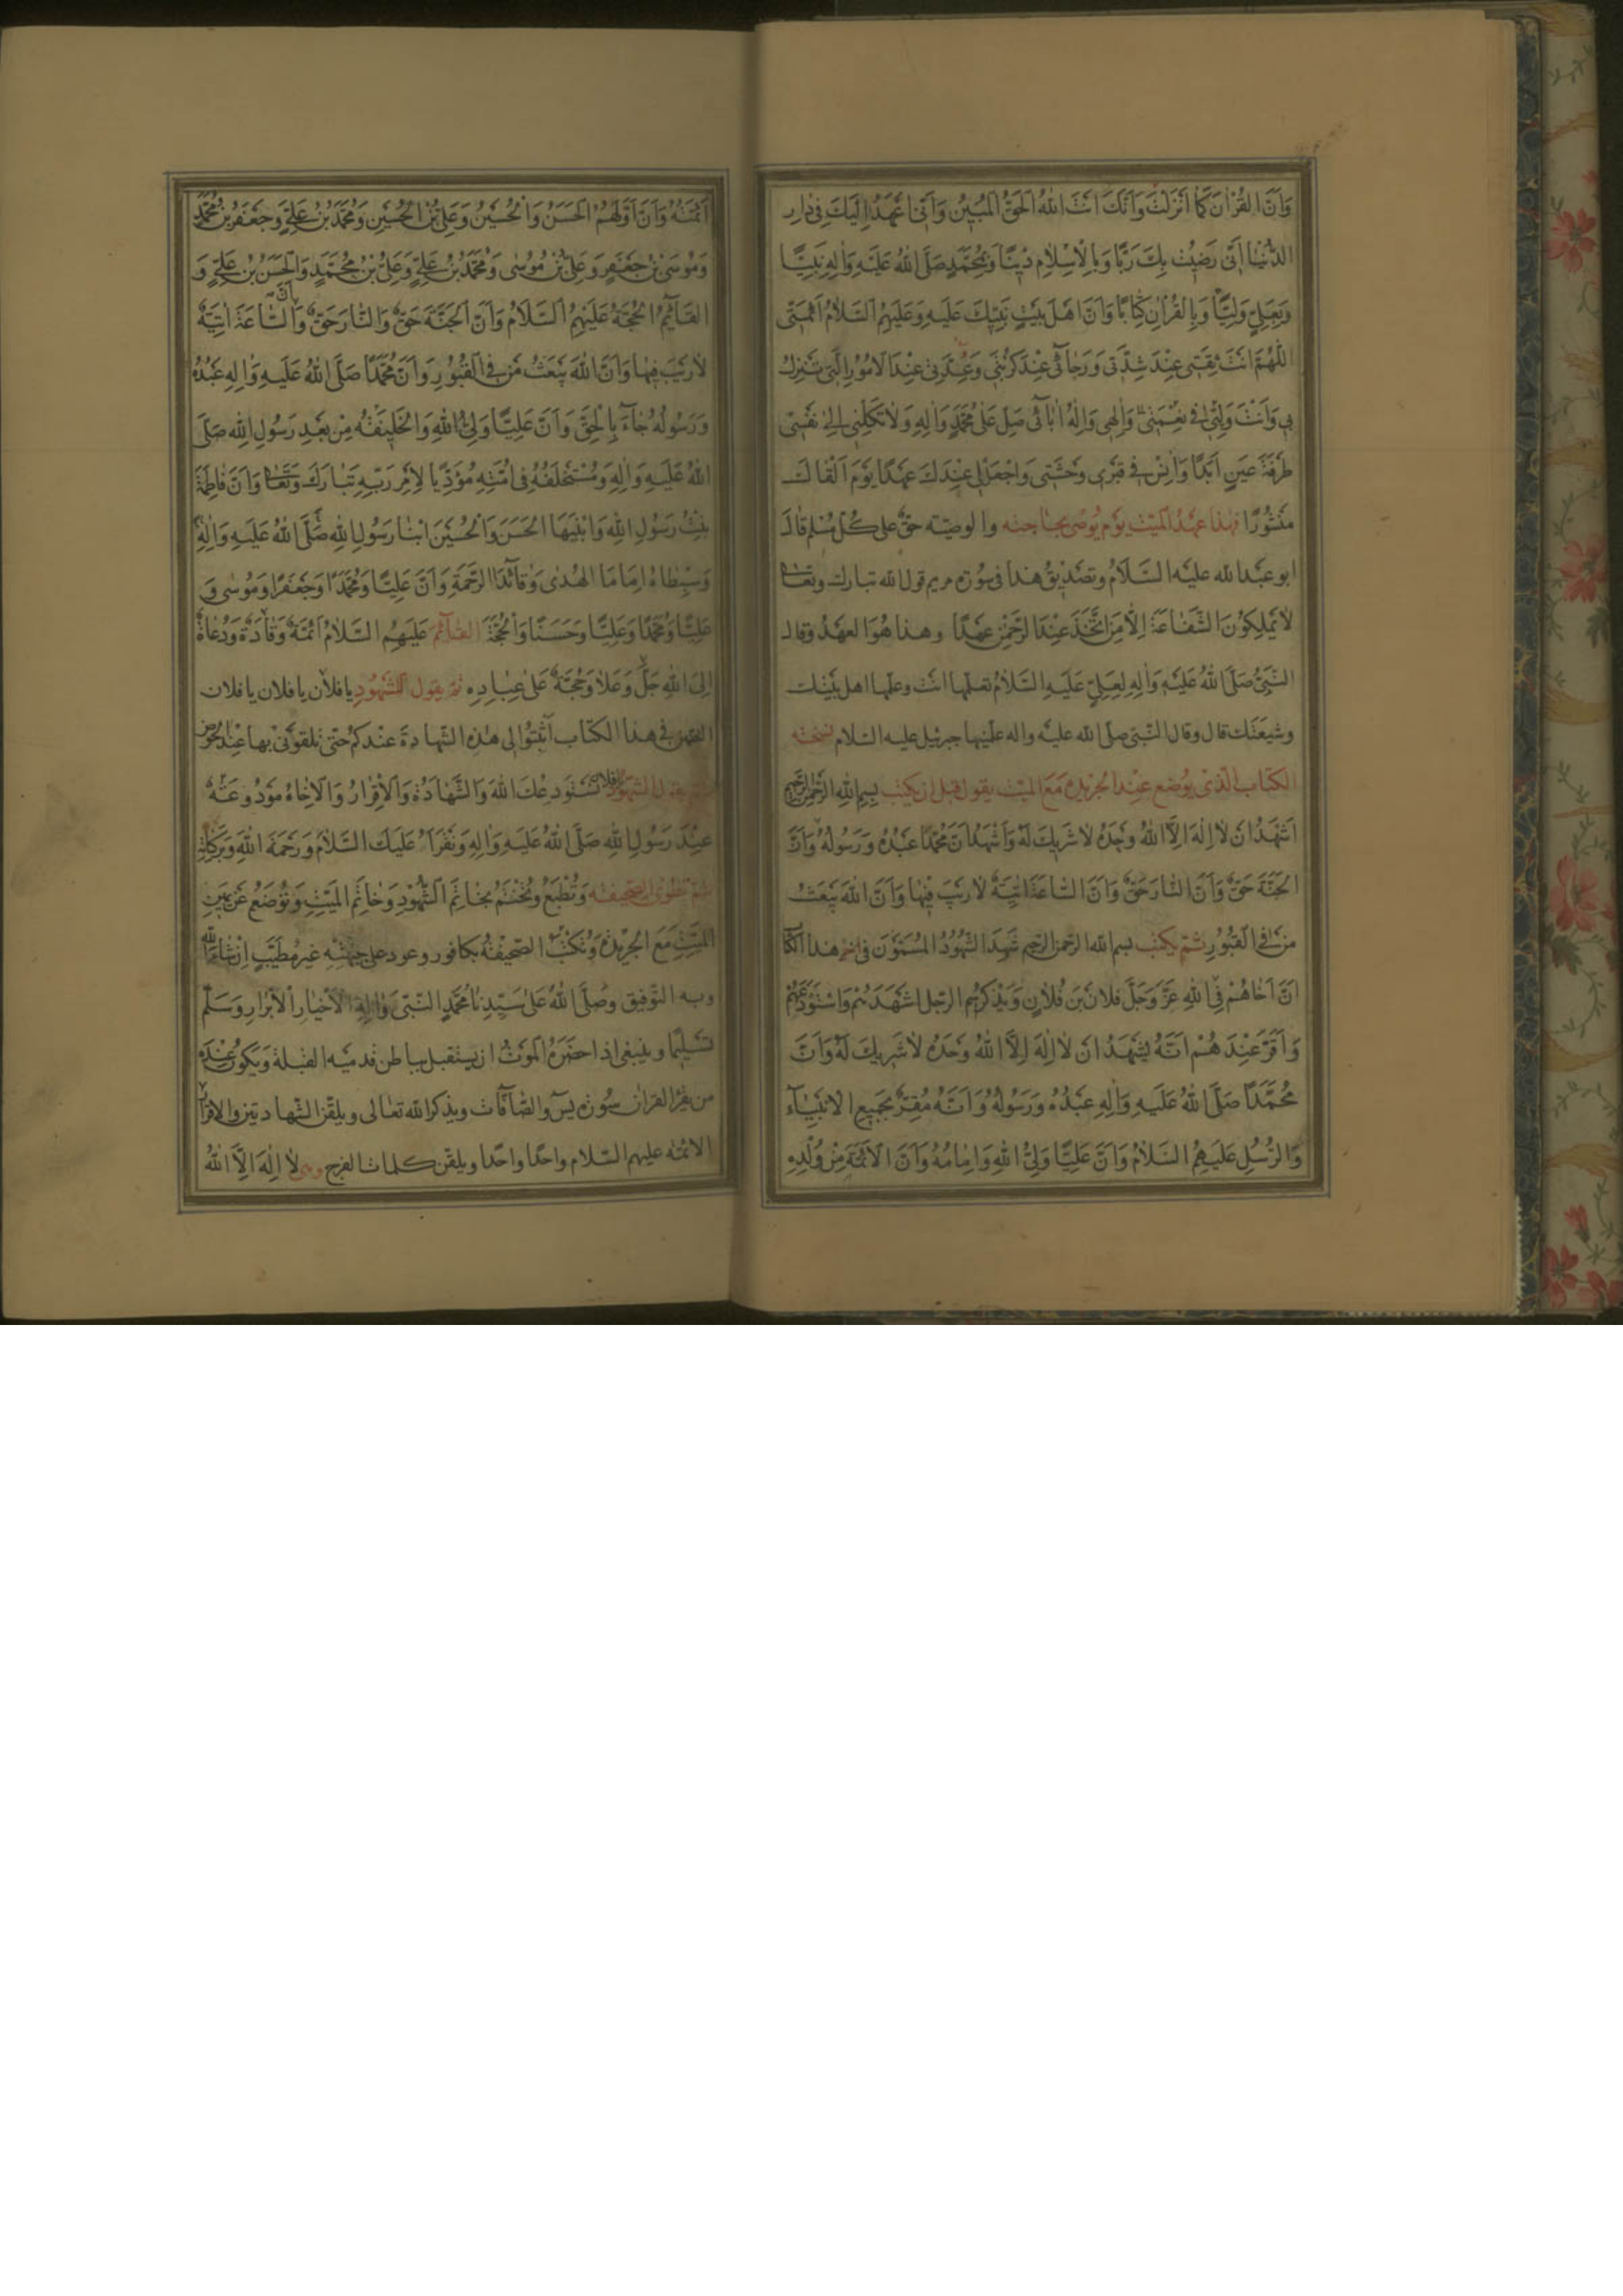 وَاَنَّ القُرْاٰنَ كَمٰا اَنْزَلْتَ وَاَنَّكَ اَنْتَ اللهُ الْحَقُّ الْمُبِيْنُ وَاَنّى اَعْهَدُ اِلَيْكَ فِى دٰارِ
الدُّنْيٰا اَنّى رَضِيْتُ بِكَ رَبًّا وَبِالْاِسْلاٰمِ دِيْنًا وَبِمُحَمَّدٍ صَلَّى اللهُ عَلَيْهِ وَاٰلِهِ نَبِيًّا
وَبِعَلِىٍّ وَلِيًّا وَبِالْقُرْاٰنِ كِتٰابًا وَاَنَّ اَهْلَ بَيْتِ نَبِيِّكَ عَلَيْهِ وَعَلَيْهِمُ السَّلاٰمُ اَئِمَّتى
اَللّٰهُمَّ اَنْتَ ثِقَتى عِنْدَ شِدَّتى وَرَجٰائى عِنْدَ كُرْبَتى وَعُدَّتى عِنْدَ الْاُمُوْرِ الَّتى تَنْزِلُ
بى وَاَنْتَ وَلِيّى فى نِعْمَتى وَاِلٰهى وَاِلٰهُ اٰبٰائى صَلِّ عَلٰى مُحَمَّدٍ وَاٰلِهِ وَلاٰ تَكِلْنى اِلٰى نَفْسى
طَرْفَةَ عَيْنٍ اَبَدًا وَاٰنِسْ فى قَبْرى وَحْشَتى وَاجْعَلْ لى عِنْدَكَ عَهْدًا يَوْمَ اَلْقٰاكَ
مَنْشُوْرًا فهٰذا عَهْدُ الْميّت يَوْم يُوْصى بحٰاجته والوصيّة حَقٌّ على كُلّ مُسْلم قٰالَ
ابو عَبْد الله عليْه السَّلاٰمُ وتصْديْقُ هٰذا فى سُوْرة مريم قول الله تبارك وتعٰالى
لاٰ يَمْلِكُوْنَ الشَّفٰاعَةَ اِلاّٰ مَنِ اتَّخَذَ عِنْدَ الرَّحْمٰنِ عَهْدًا وهٰذا هُوَ العهْدُ وقال
النَّبِىُّ صَلَّى اللهُ عَلَيْهِ وَاٰلِهِ لِعَلِىٍّ عَلَيْهِ السَّلاٰمُ تعلّمها انْت وعلّمها اهل بَيْتك
وشيعَتَك قال وقال النّبى صلّى الله عليْه واله علّمَنيها جبرئيل عليه السّلام نسْخَة
الكتٰاب الّذى يُوضع عِنْد الْجريْدة مَعَ الميّت يقول قبل ان يكتب بِسْمِ اللهِ الرَّحْمٰنِ الرَّحيمِ
اَشْهَدُ اَنْ لاٰ اِلٰهَ اِلاَّ اللهُ وَحْدَهُ لاٰ شَرِيْكَ لَهُ وَاَشْهَدُ اَنَّ مُحَمَّدًا عَبْدُهُ وَرَسُولُهُ وَاَنَّ
الْجَنَّةَ حَقٌّ وَاَنَّ النّٰارَ حَقٌّ وَاَنَّ السّٰاعَةَ اٰتِيَةٌ لاٰ رَيْبَ فِيْهٰا وَاَنَّ اللهَ يَبْعَثُ
مَنْ فِى الْقُبُوْرِ ثُمّ يَكتب بسم الله الرّحمن الرّحيم شَهِدَ الشُّهُوْدُ الْمُسَمَّوْنَ فى هٰذا الكتٰا
اَنَّ اَخٰاهُمْ فِى اللهِ عَزَّ وَجَلَّ فلاٰنَ بْنَ فُلاٰنٍ وَيذْكرُ اسْم الرّجل اَشْهَدَهُمْ وَاسْتَوْدَعَهُمْ
وَاَقَرَّ عِنْدَهُمْ اَنَّهُ يَشْهَدُ اَنْ لاٰ اِلٰهَ اِلاَّ اللهُ وَحْدَهُ لاٰ شَرِيكَ لَهُ وَاَنَّ
مُحَمَّدًا صَلَّى اللهُ عَلَيْهِ وَاٰلِهِ عَبْدُهُ وَرَسُوْلُهُ وَاَنَّهُ مُقِرٌّ بِجَمِيْعِ الْاَنْبِيٰاۤءِ
وَالرُّسُلِ عَلَيْهِمُ السَّلاٰمُ وَاَنَّ عَلِيًّا وَلِىُّ اللهِ وَاِمٰامُهُ وَاَنَّ الْاَئِمَّةَ مِنْ وُلْدِهِ
اَئِمَّتُهُ وَاَنَّ اَوَّلَهُمُ الْحَسَنُ وَالْحُسَيْنُ وَعَلِىُّ بْنُ الْحُسَيْنِ وَمُحَمَّدُ بْنُ عَلِىٍّ وَجَعْفَرُ بْنُ مُحَمَّدٍ
وَمُوْسَى بْنُ جَعْفَرٍ وَعَلِىُّ بْنُ مُوْسٰى وَمُحَمَّدُ بْنُ عَلِىٍّ وَعَلِىُّ بْنُ مُحَمَّدٍ وَالْحَسَنُ بْنُ عَلِىٍّ وَ
القٰاۤئِمُ الْحُجَّةُ عَلَيْهِمُ السَّلاٰمُ وَاَنَّ الْجَنَّةَ حَقٌّ وَالنّٰارَ حَقٌّ وَاَنَّ السّٰاعَةَ اٰتِيَةٌ
لاٰ رَيْبَ فِيْهٰا وَاَنَّ اللهَ يَبْعَثُ مَنْ فِى الْقُبُوْرِ وَاَنَّ مُحَمَّدًا صَلَّى اللهُ عَلَيْهِ وَاٰلِهِ عَبْدُهُ
وَرَسُوْلُهُ جٰاۤءَ بِالْحَقِّ وَاَنَّ عَلِيًّا وَلِىُّ اللهِ وَالْخَلِيْفَةُ مِنْ بَعْدِ رَسُوْلِ اللهِ صَلَّى
اللهُ عَلَيْهِ وَاٰلِهِ وَمُسْتَخْلَفُهُ فِى اُمَّتِهِ مُؤَدِّيًا لِاَمْرِ رَبِّهِ تَبٰارَكَ وَتَعٰالٰى وَاَنَّ فٰاطِمَةَ
بِنْتُ رَسُوْلِ اللهِ وَابْنَيْهَا الْحَسَنَ وَالْحُسَيْنَ ابْنٰا رَسُوْلِ اللهِ صَلَّى اللهُ عَلَيْهِ وَاٰلِهِ
وَسِبْطٰاهُ اِمٰامَا الهُدٰى وَقٰاۤئِدَا الرَّحْمَةِ وَاَنَّ عَلِيًّا وَمُحَمَّدًا وَجَعْفَرًا وَمُوْسٰى وَ
عَلِيًّا وَمُحَمَّدًا وَعَلِيًّا وَحَسَنًا وَالْحُجَّةَ القٰاۤئِمَ عَلَيْهِمُ السَّلاٰمُ اَئِمَّةٌ وَقٰادَةٌ وَدُعٰاةٌ
اِلَى اللهِ جَلَّ وَعَلاٰ وَحُجَّةٌ عَلٰى عِبٰادِهِ ثمّ يقول للشّهُوْدِ يا فلاٰن يا فلان يا فلان
فى هٰذا الكتٰاب اَثْبِتُوْا لى هٰذِهِ الشّهادةَ عنْدكم حتّى تلقوْنى بها عِنْدَ الْحَوْض
ثمّ يقول الشّهوْد يا فلان نَسْتَوْدِعُكَ اللهَ وَالشَّهٰادَةُ وَالْاِقْرٰارُ وَالْاِخٰاۤءُ مَوْدُوعَةٌ
عِنْدَ رَسُوْلِ اللهِ صَلَّى اللهُ عَلَيْهِ وَاٰلِهِ وَنَقْرَأُ عَلَيْكَ السَّلاٰمَ وَرَحْمَةَ اللهِ وَبَرَكٰاتِهِ
ثمّ تُطْوَى الصّحيفة وَتُطْبَعُ وَتُخْتَمُ بخٰاتَمِ الشُّهُوْدِ وَخٰاتَمِ الْمَيِّتِ وَتُوْضَعُ عَنْ يَمِيْنِ
الْمَيِّتِ مَعَ الْجَرِيْدَةِ وَتُكْتَبُ الصَّحِيْفَةُ بكافور وعود على جبْهَتِهِ غَيْرَ مُطَيَّبٍ اِنْ شٰاۤءَ الله
وبه التّوْفيق وصَلَّى اللهُ عَلٰى سَيِّدِنٰا مُحَمَّدٍ النَّبِىّ وَاٰلِهِ الْاَخْيٰارِ الْاَبْرٰارِ وَسَلَّمَ
تَسْلِيْمًا وينبغى اذا حضَرَهُ الْمَوْتُ ان يستقبل بباطن قدميْه القبْلة وَيكُون عنْدَهُ
من يقْرَأُ القرٰان سُوْرة يٰس والصّٰاۤفّات ويذكر الله تعٰالى ويلقّن الشّهادتين والاقْرٰار
الائمّة عليهم السّلام واحدًا واحدًا ويلقّن كلمات الفرج وهى لاٰ اِلٰهَ اِلاَّ اللهُ